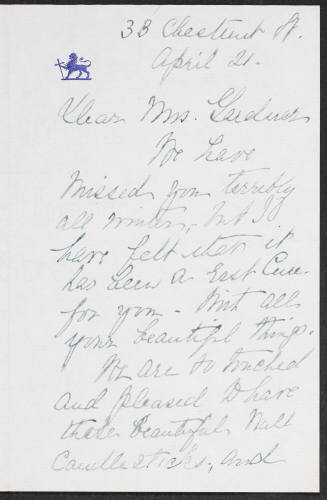 33 Chestnut St.
April 21.
Dear Mrs. Gardner
We have
missed you terribly
all winter, but I
have felt that it
has been a Rest Cure
for you - with all
your beautiful things.
We are so touched
and pleased to have
those beautiful Wall
Candlesticks, and